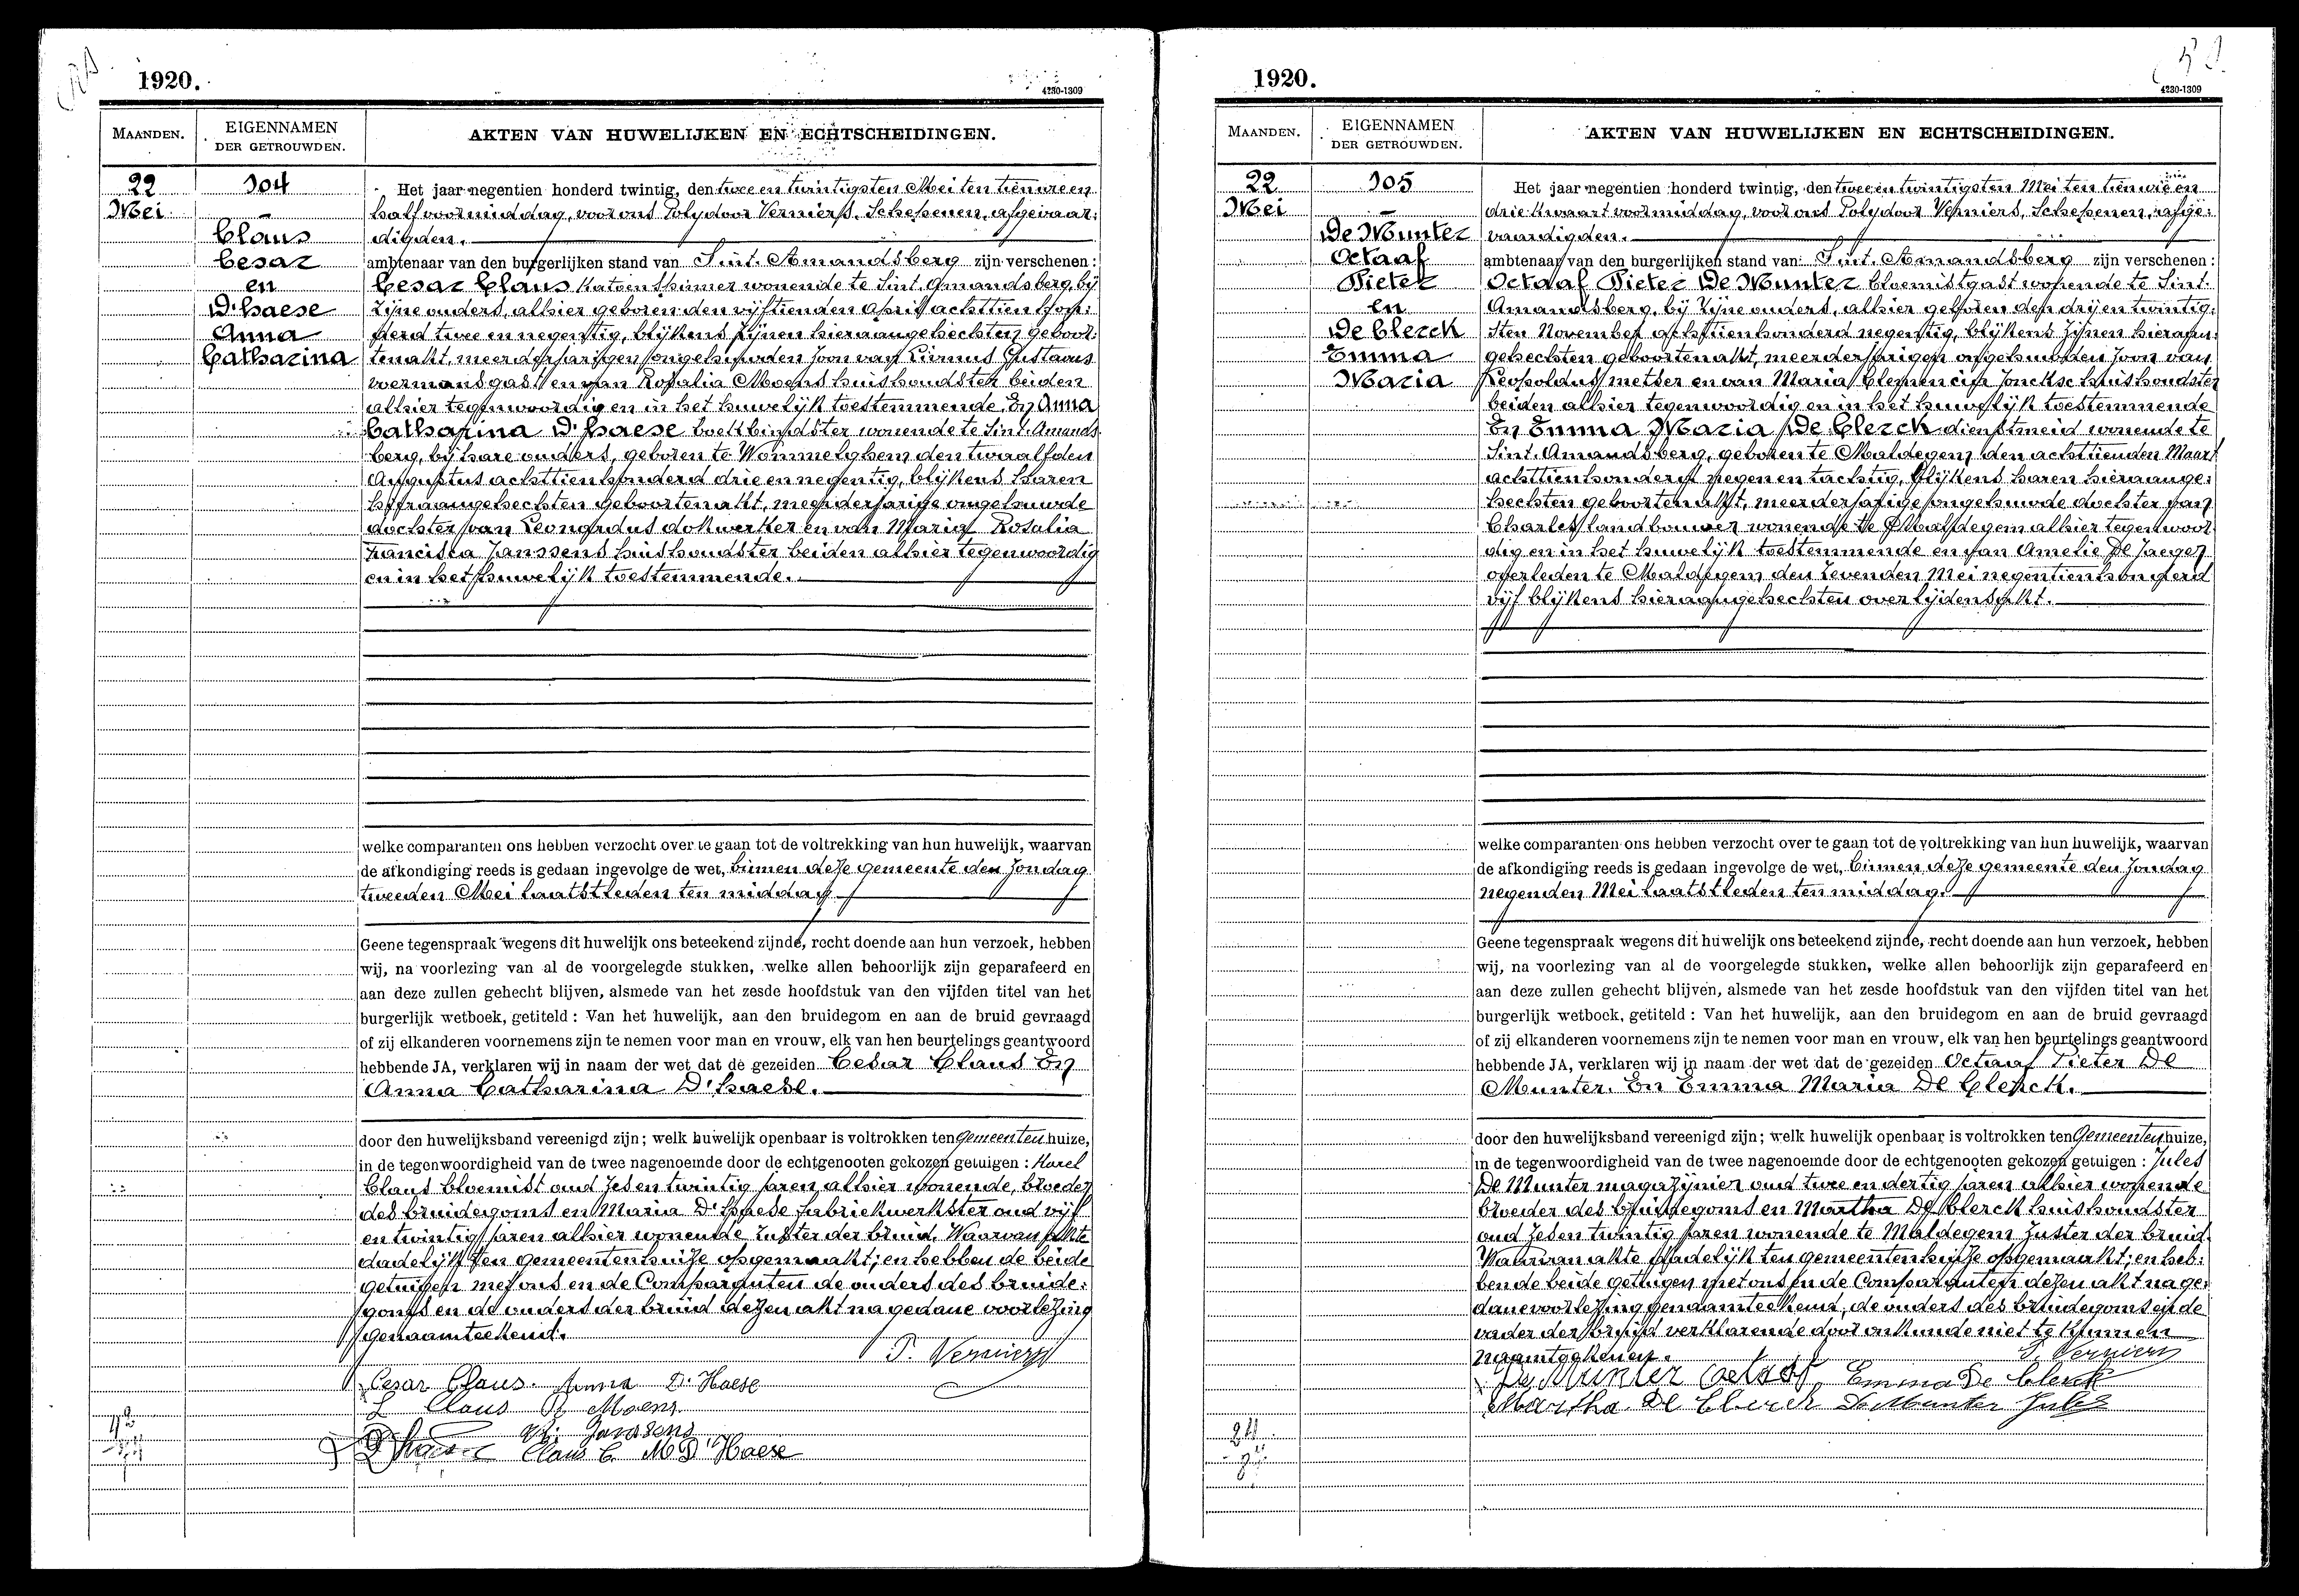 1920.
4230-1309
MAANDEN.
EIGENNAMEN
DER GETROUWDEN.
AKTEN VAN HUWELIJKEN EN ECHTSCHEIDINGEN.
22
Mei
104
Claus
Cesar
en
D'haese
Anna
Catharina
Het jaar negentien honderd twintig, den twee en twintigsten Mei ten tien ure en
half voormiddag, voor ons Polydoor Verniers, Schepenen, afgevaar:
digden.
ambtenaar van den burgerlijken stand van Sint. Amandsberg zijn verschenen :
Cesar Claus katoenspinner wonende te Sint. Amandsberg, bij
zijne ouders, alhier geboren den vijftienden April achttien hon:
derd twee en negentig, blijkens zijnen hieraangehechten geboor:
tenakt, meerderjarigen ongehuwden zoon van Livinus Gustavus
voermansgast en van Rosalia Moens huishoudster beiden
alhier tegenwoordig en in het huwelijk toestemmende. En Anna
Catharina D'haese boekbindster wonende te Sint. Amands
berg, bij hare ouders, geboren te Wommelghem den twaalfden
Augustus achttienhonderd drie en negentig, blijkens haren
hieraangehechten geboortenakt, meerderjarige ongehuwde
dochter van Leonardus dokwerker en van Maria Rosalia
Francisca Janssens huishoudster beiden alhier tegenwoordig
en in het huwelijk toestemmende.
welke comparanten ons hebben verzocht over te gaan tot de voltrekking van hun huwelijk, waarvan
de afkondiging reeds is gedaan ingevolge de wet, binnen deze gemeente den Zondag
tweeden Mei laatstleden ten middag
Geene tegenspraak wegens dit huwelijk ons beteekend zijnde, recht doende aan hun verzoek, hebben
wij, na voorlezing van al de voorgelegde stukken, welke allen behoorlijk zijn geparafeerd en
aan deze zullen gehecht blijven, alsmede van het zesde hoofdstuk van den vijfden titel van het
burgerlijk wetboek, getiteld : Van het huwelijk, aan den bruidegom en aan de bruid gevraagd
of zij elkanderen voornemens zijn te nemen voor man en vrouw, elk van hen beurtelings geantwoord
hebbende JA, verklaren wij in naam der wet dat de gezeiden Cesar Claus En
Anna Catharina D'haese.
door den huwelijksband vereenigd zijn ; welk huwelijk openbaar is voltrokken ten Gemeenten huize,
in de tegenwoordigheid van de twee nagenoemde door de echtgenooten gekozen getuigen : Karel
Claus bloemist oud zes en twintig jaren alhier wonende, broeder
des bruidegoms en Maria D'haese fabriekwerkster oud vijf
en twintig jaren alhier wonende zuster der bruid. Waarvan akte
dadelijk ten gemeentenhuize opgemaakt; en hebben de beide
getuigen met ons en de Comparanten de ouders des bruide:
goms en de ouders der bruid dezen akt na gedane voorlezing
genaamteekend.
P. Verniers
Cesar Claus. Anna D'Haese
L Claus R Moens
Janssens
D'haese Claus C. M D'Haese
1920.
4230-1309
MAANDEN.
EIGENNAMEN
DER GETROUWDEN.
AKTEN VAN HUWELIJKEN EN ECHTSCHEIDINGEN.
22
Mei
105
De Munter
Octaaf
Pieter
en
De Clerck
Emma
Maria
Het jaar negentien honderd twintig, den twee en twintigsten Mei ten tien ure en
drie kwaart voormiddag, voor ons Polydoor Verniers, Schepenen, afge:
vaardigden.
ambtenaar van den burgerlijken stand van Sint. Amandsberg zijn verschenen :
Octaaf Pieter De Munter bloemistgast wonende te Sint.
Amandsberg, bij zijne ouders, alhier geboren den drij en twintig:
sten November achttienhonderd negentig, blijkens zijnen hieraan:
gehechten geboortenakt, meerderjarigen ongehuwden zoon van
Leopoldus metser en van Maria Clemencia Jonckse huishoudster
beiden alhier tegenwoordig en in het huwelijk toestemmende
En Emma Maria De Clerck dienstmeid wonende te
Sint. Amandsberg, geboren te Maldegem den achttienden Maart
achttienhonderd negen en tachtig, blijkens haren hieraange:
hechten geboortenakt, meerderjarige ongehuwde dochter van
Charles landbouwer wonende te Maldegem alhier tegenwoor
dig en in het huwelijk toestemmende en van Amelie De Jaeger
overleden te Maldegem den zevenden Mei negentienhonderd
vijf blijkens hieraangehechten overlijdensakt.
welke comparanten ons hebben verzocht over te gaan tot de voltrekking van hun huwelijk, waarvan
de afkondiging reeds is gedaan ingevolge de wet, binnen deze gemeente den Zondag
negenden Mei laatstleden ten middag.
Geene tegenspraak wegens dit huwelijk ons beteekend zijnde, recht doende aan hun verzoek, hebben
wij, na voorlezing van al de voorgelegde stukken, welke allen behoorlijk zijn geparafeerd en
aan deze zullen gehecht blijven, alsmede van het zesde hoofdstuk van den vijfden titel van het
burgerlijk wetboek, getiteld : Van het huwelijk, aan den bruidegom en aan de bruid gevraagd
of zij elkanderen voornemens zijn te nemen voor man en vrouw, elk van hen beurtelings geantwoord
hebbende JA, verklaren wij in naam der wet dat de gezeiden Octaaf Pieter De
Munter. En Emma Maria De Clerck.
door den huwelijksband vereenigd zijn ; welk huwelijk openbaar is voltrokken ten Gemeenten huize,
in de tegenwoordigheid van de twee nagenoemde door de echtgenooten gekozen getuigen : Jules
De Munter magazijnier oud twee en dertig jaren alhier wonende
broeder des bruidegoms en Martha De Clerck huishoudster
oud zes en twintig jaren wonende te Maldegem zuster der bruid
Waarvan akte dadelijk ten gemeentenhuize opgemaakt; en heb:
ben de beide getuigen met ons en de Comparanten dezen akt na ge:
dane voorlezing genaamteekend, de ouders des bruidegoms en de
vader der bruid verklarende door onkunde niet te kunnen
naamteekenen.
P. Verniers
De Munter Octaaf Emma De Clerck
Martha De Clerck De Munter Jules